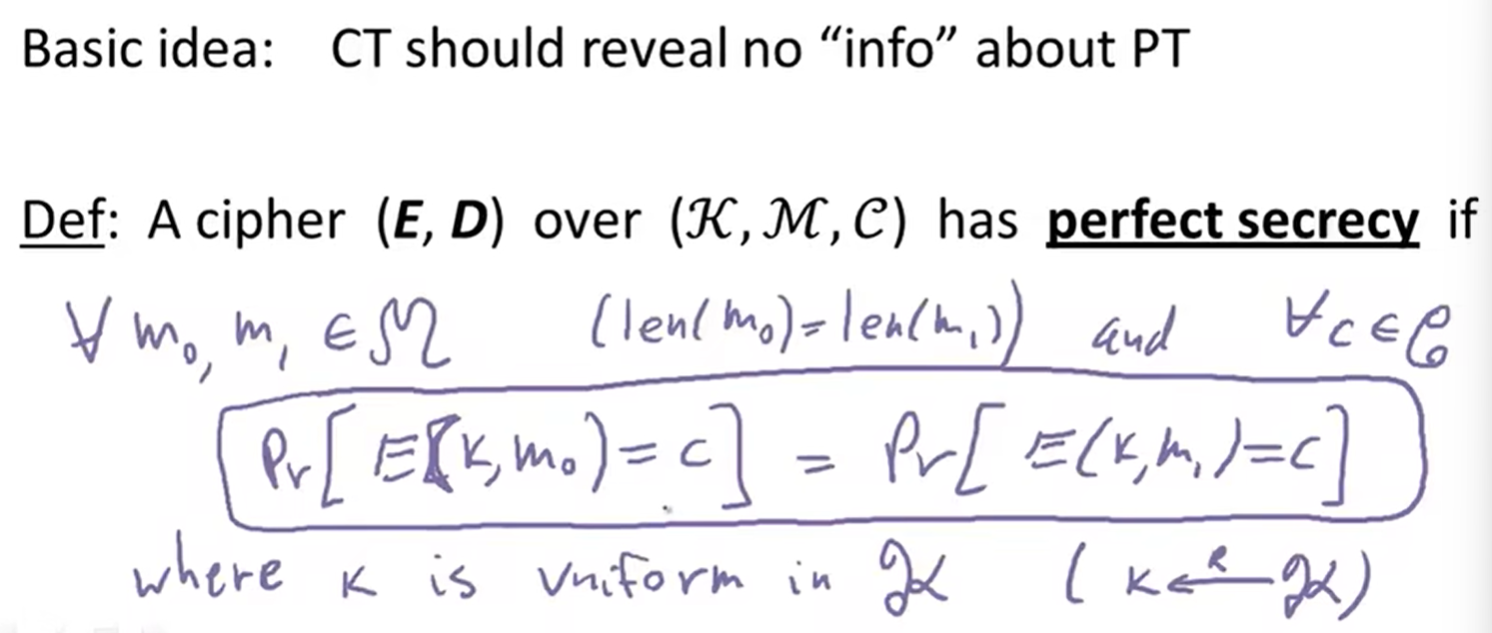 Basic idea: CT should reveal no “info” about PT
Def: A cipher (E, D) over (𝒦, ℳ, 𝒞) has perfect secrecy if
∀ m₀, m₁ ∈ ℳ (len(m₀)=len(m₁)) and ∀c∈𝒞
Pr[ E(k,m₀)=c ] = Pr[ E(k,m₁)=c ]
where k is uniform in 𝒦 ( k ←ᴿ 𝒦 )